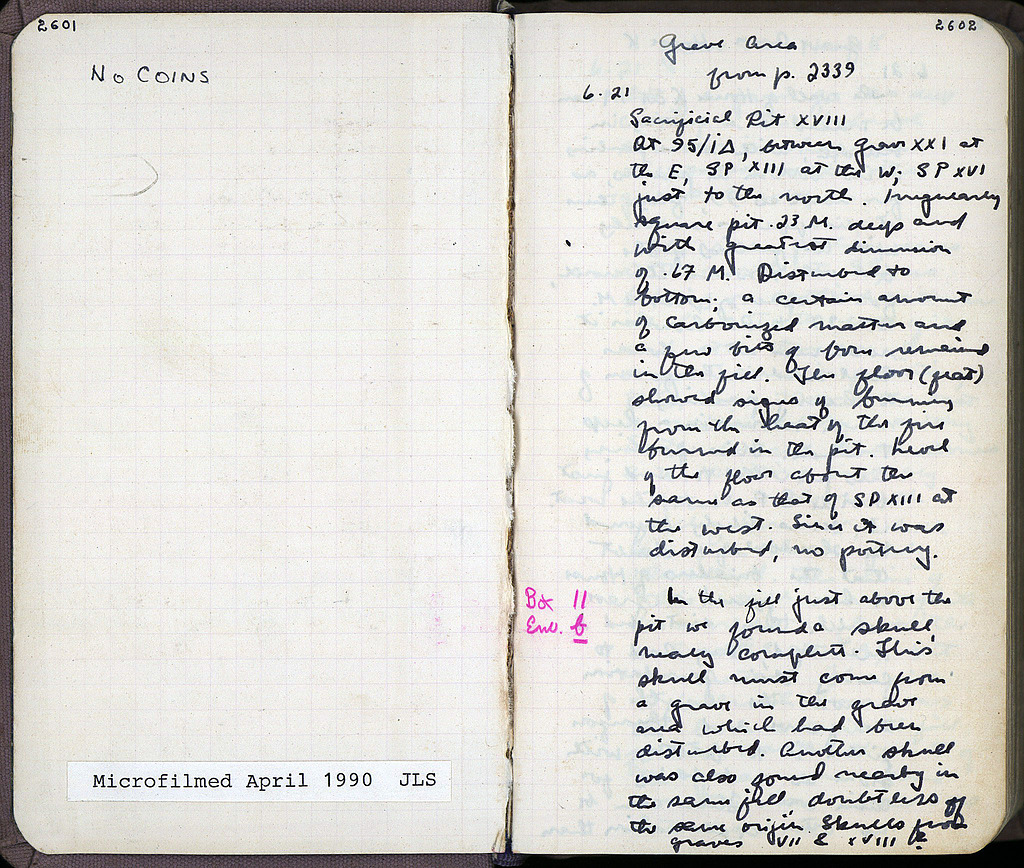 2601
NO COINS
Microfilmed April 1990 JLS
2602
Grave Area
from p. 2339
6.21
Sacrificial Pit XVIII
At 95/ΙΔ, between grave XXI at
the E, SP XIII at the W; SP XVI
just to the north. Irregularly
square pit .23 M. deep and
with greatest dimension
of .67 M. Disturbed to
bottom, a certain amount
of carbonized matter and
a few bits of bone remained
in the fill. The floor (flat)
showed signs of burning
from the heat of the fire
burned in the pit. Level
of the floor about the
same as that of SP XIII at
the west. Since it was
disturbed, no pottery.
Box 11
Env. b
In the fill just above the
pit we found a skull,
nearly complete. This
skull must come from
a grave in the grave
area which had been
disturbed. Another skull
was also found nearby in
the same fill, doubtless of
the same origin. Skulls from
graves VII & XVIII ?